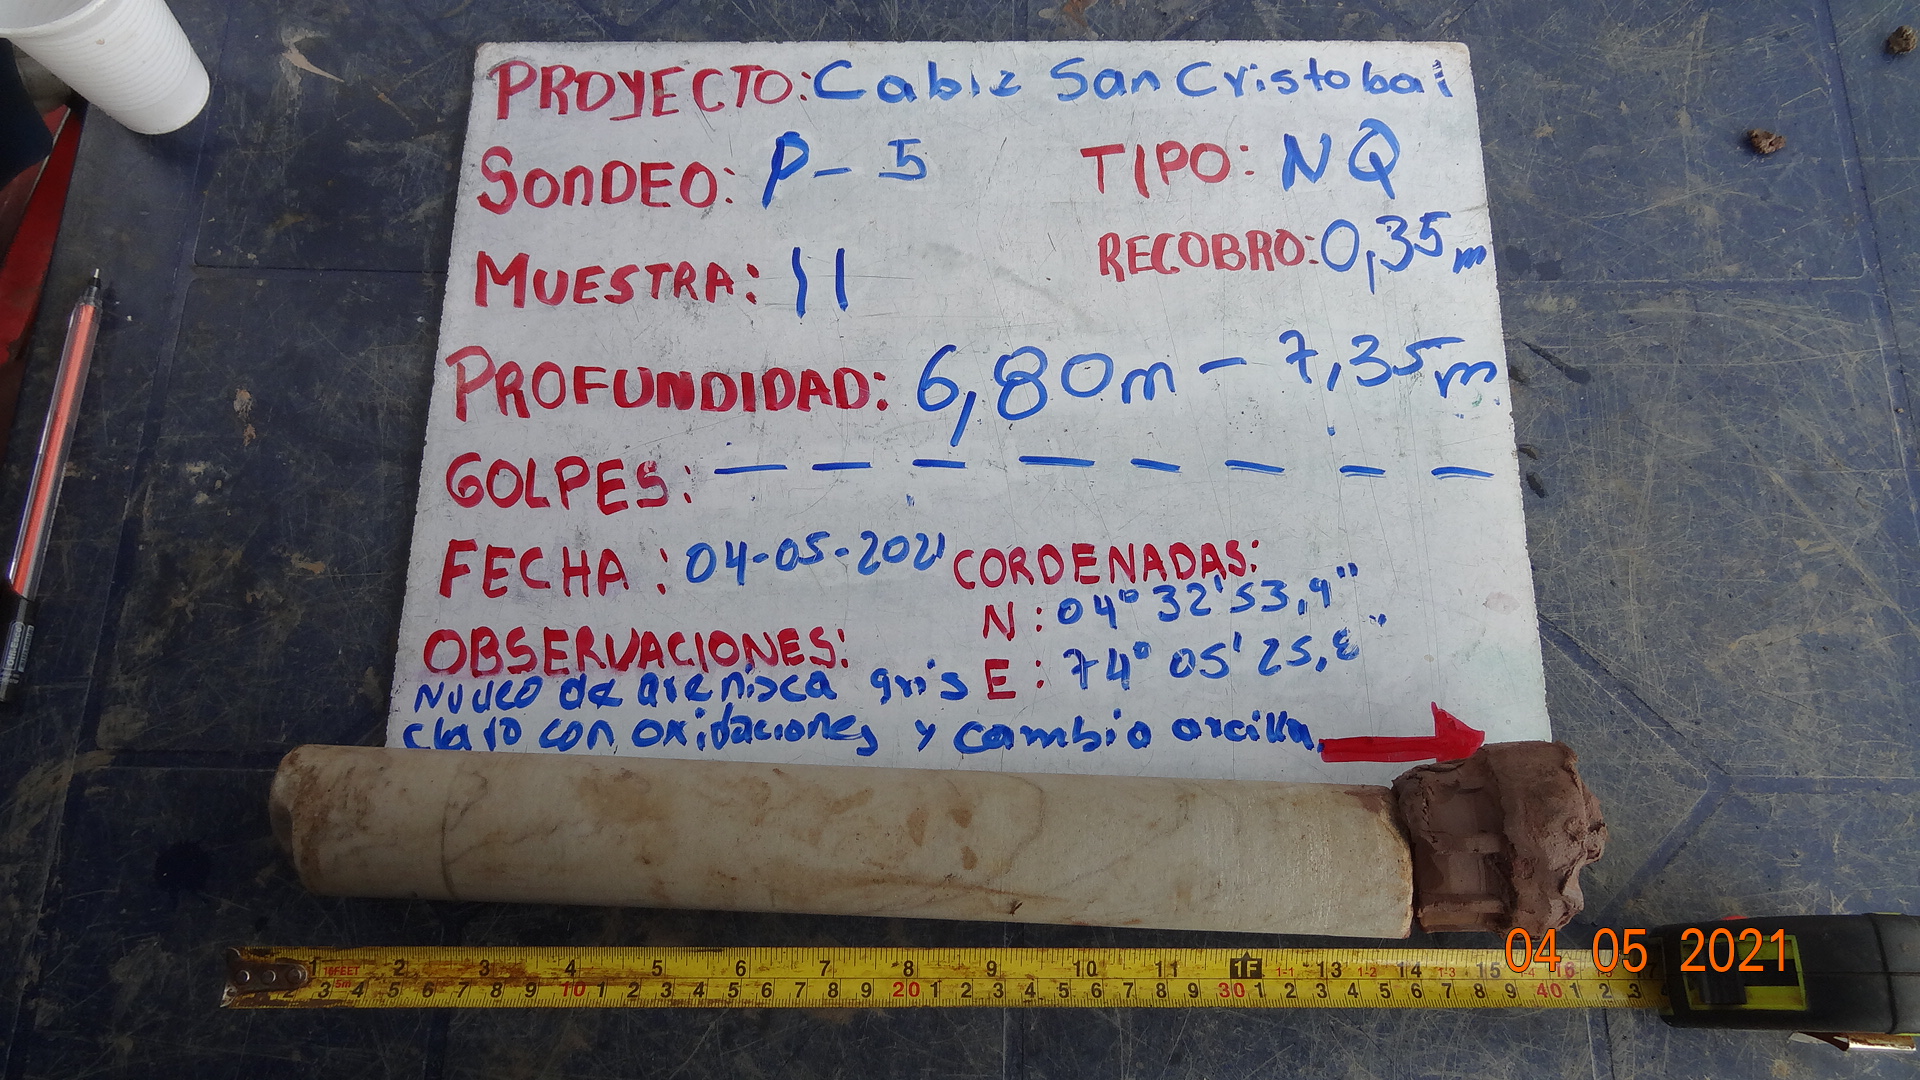 PROYECTO: Cable San Cristobal
SONDEO: P-5 TIPO: NQ
MUESTRA: 11 RECOBRO: 0,35m
PROFUNDIDAD: 6,80m - 7,35m
GOLPES: — — — — — — — —
FECHA: 04-05-2021 CORDENADAS:
N: 04° 32' 53,9"
E: 74° 05' 25,8"
OBSERVACIONES:
Nucleo de arenisca gris
claro con oxidaciones y cambio arcilla.
1 2 3 4 5 6 7 8 9 10 11 1F 13 14 15 16
3 4 5 6 7 8 9 10 1 2 3 4 5 6 7 8 9 20 1 2 3 4 5 6 7 8 9 30 1 2 3 4 5 6 7 8 9 40 1 2 3
04 05 2021